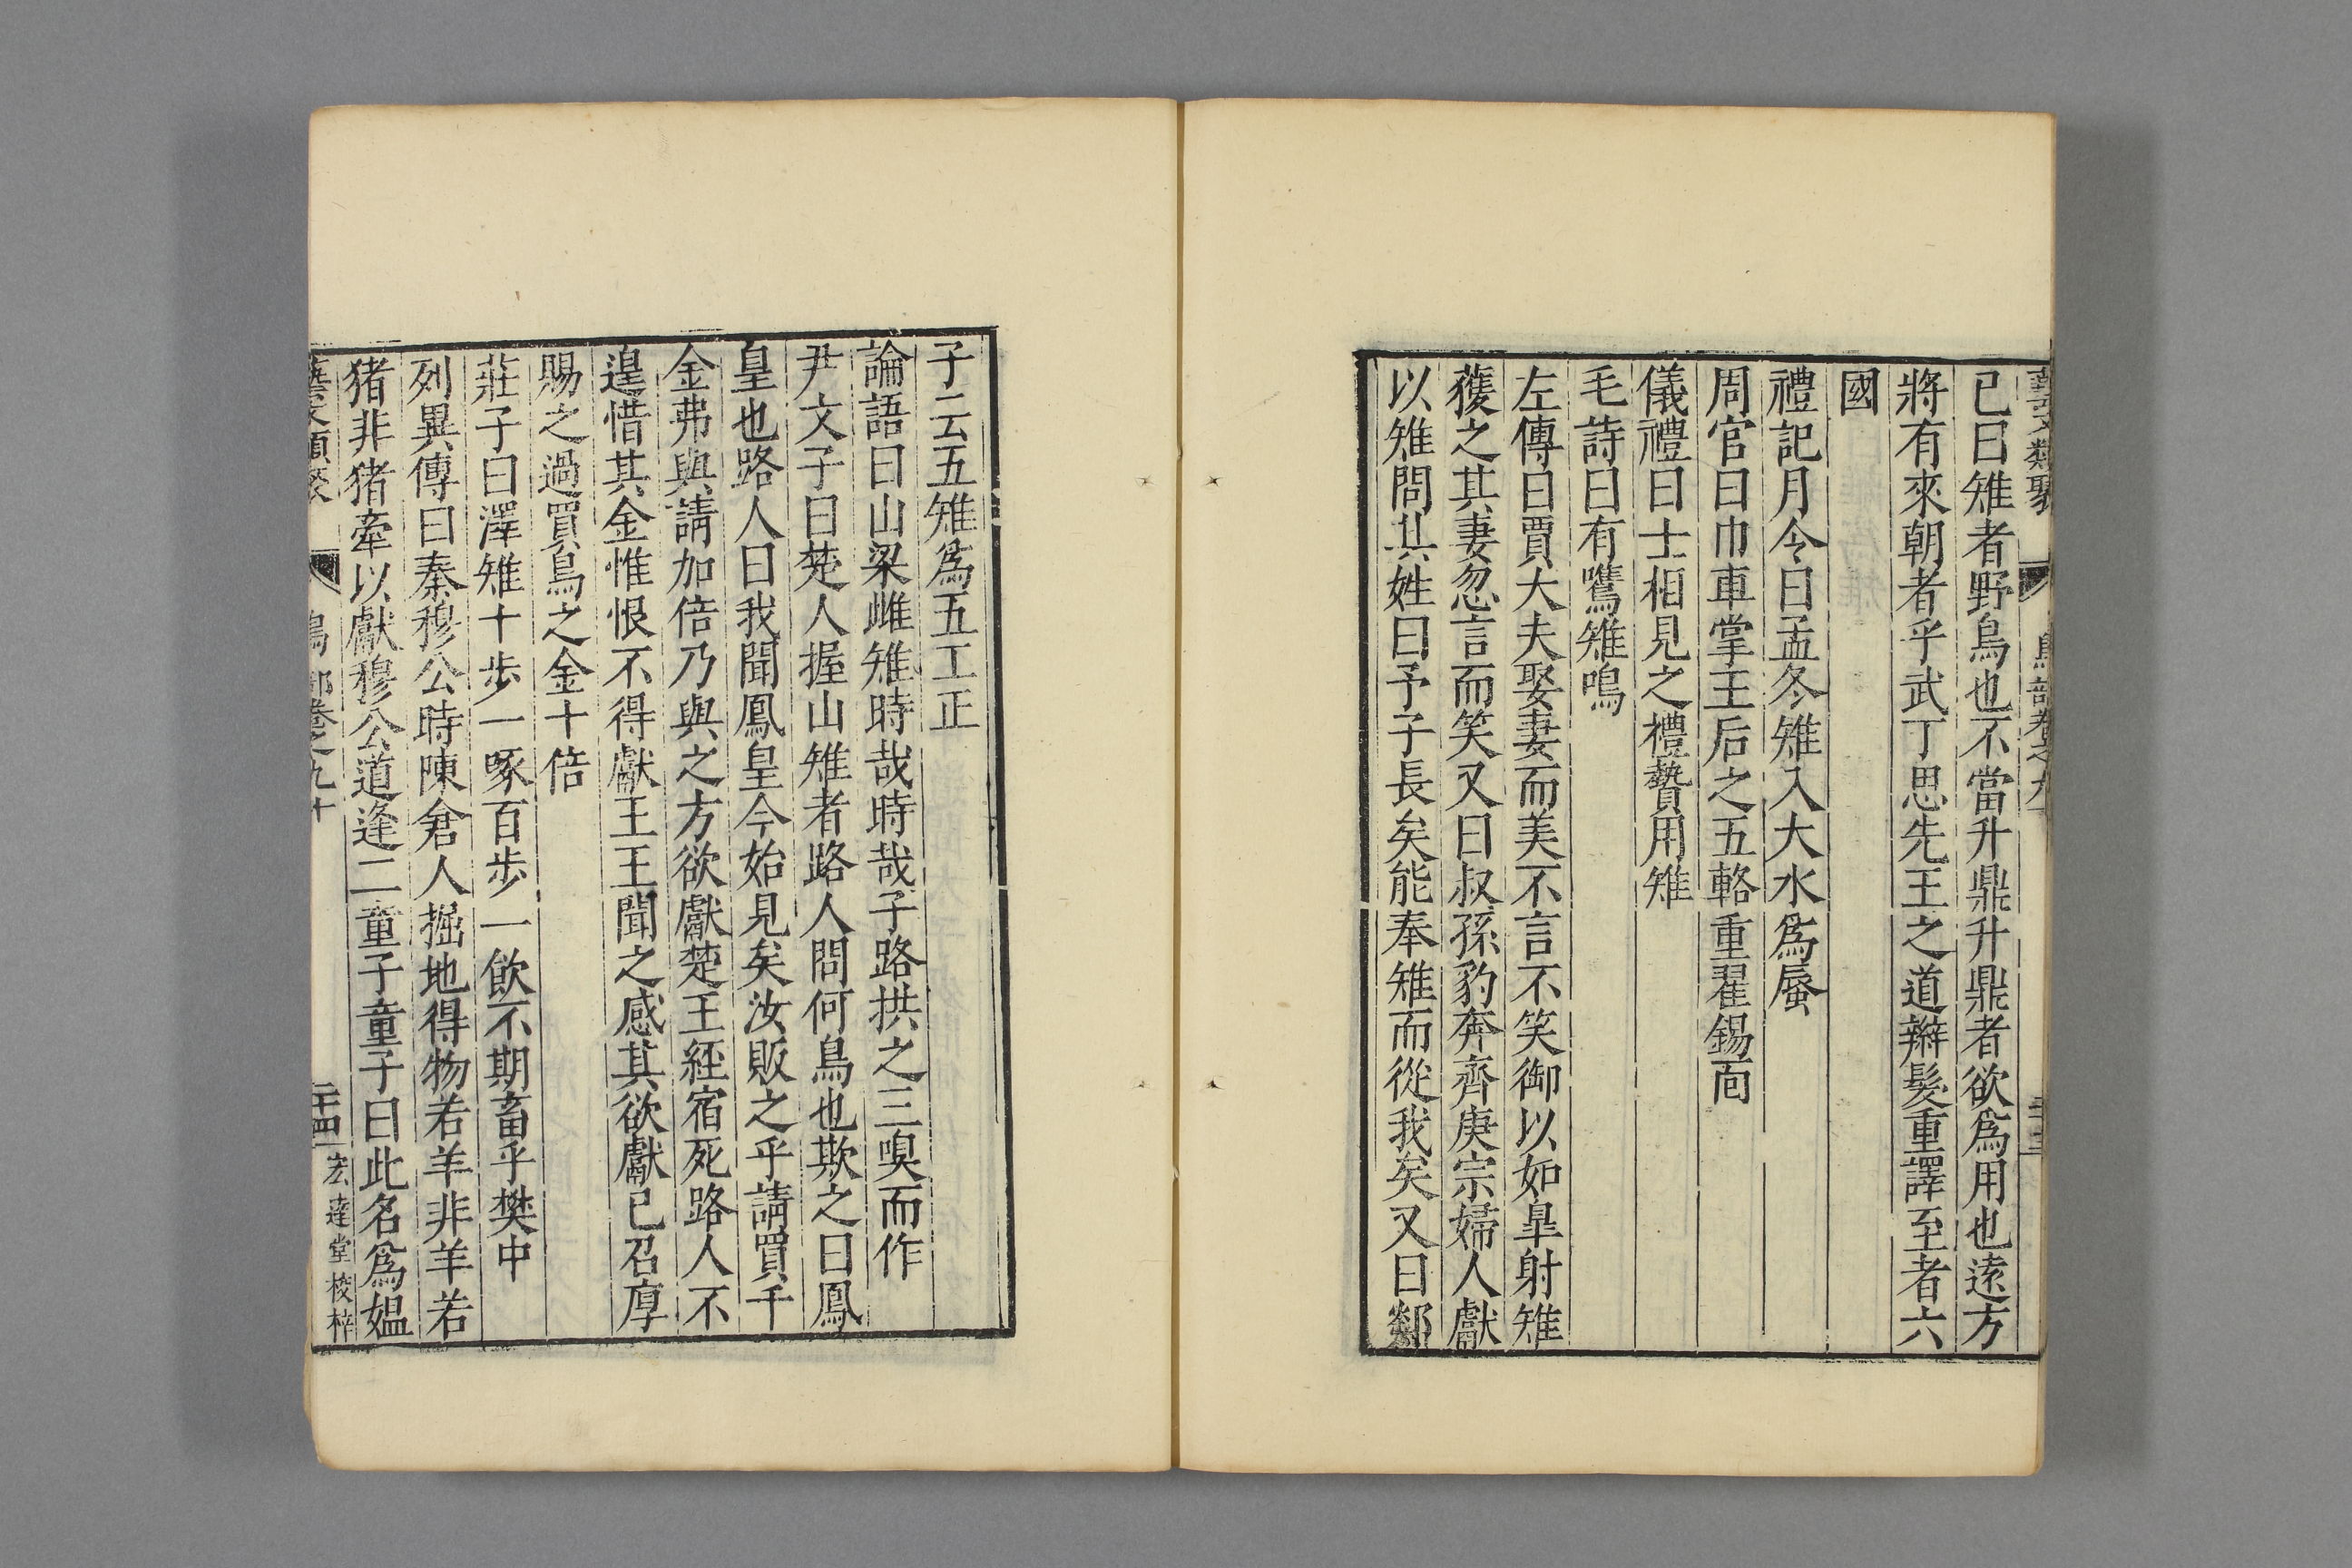 藝文類聚 鳥部卷之九 二十三
已曰雉者野鳥也不當升鼎升鼎者欲爲用也遠方
將有來朝者乎武丁思先王之道辮髮重譯至者六
國
禮記月令曰孟冬雉入大水爲蜃
周官曰巾車掌王后之五輅重翟錫面
儀禮曰士相見之禮贄用雉
毛詩曰有鷕雉鳴
左傳曰賈大夫娶妻而美不言不笑御以如皐射雉
獲之其妻忽言而笑又曰叔孫豹奔齊庚宗婦人獻
以雉問其姓曰予子長矣能奉雉而從我矣又曰郯
子云五雉爲五工正
論語曰山梁雌雉時哉時哉子路拱之三嗅而作
尹文子曰楚人握山雉者路人問何鳥也欺之曰鳳
皇也路人曰我聞鳳皇今始見矣汝販之乎請買千
金弗與請加倍乃與之方欲獻楚王經宿死路人不
遑惜其金惟恨不得獻王王聞之感其欲獻已召厚
賜之過買鳥之金十倍
莊子曰澤雉十步一啄百步一飲不期畜乎樊中
列異傳曰秦穆公時陳倉人掘地得物若羊非羊若
猪非猪牽以獻穆公道逢二童子童子曰此名爲媪
藝文類聚 鳥部卷之九十 二十四 宏達堂校梓